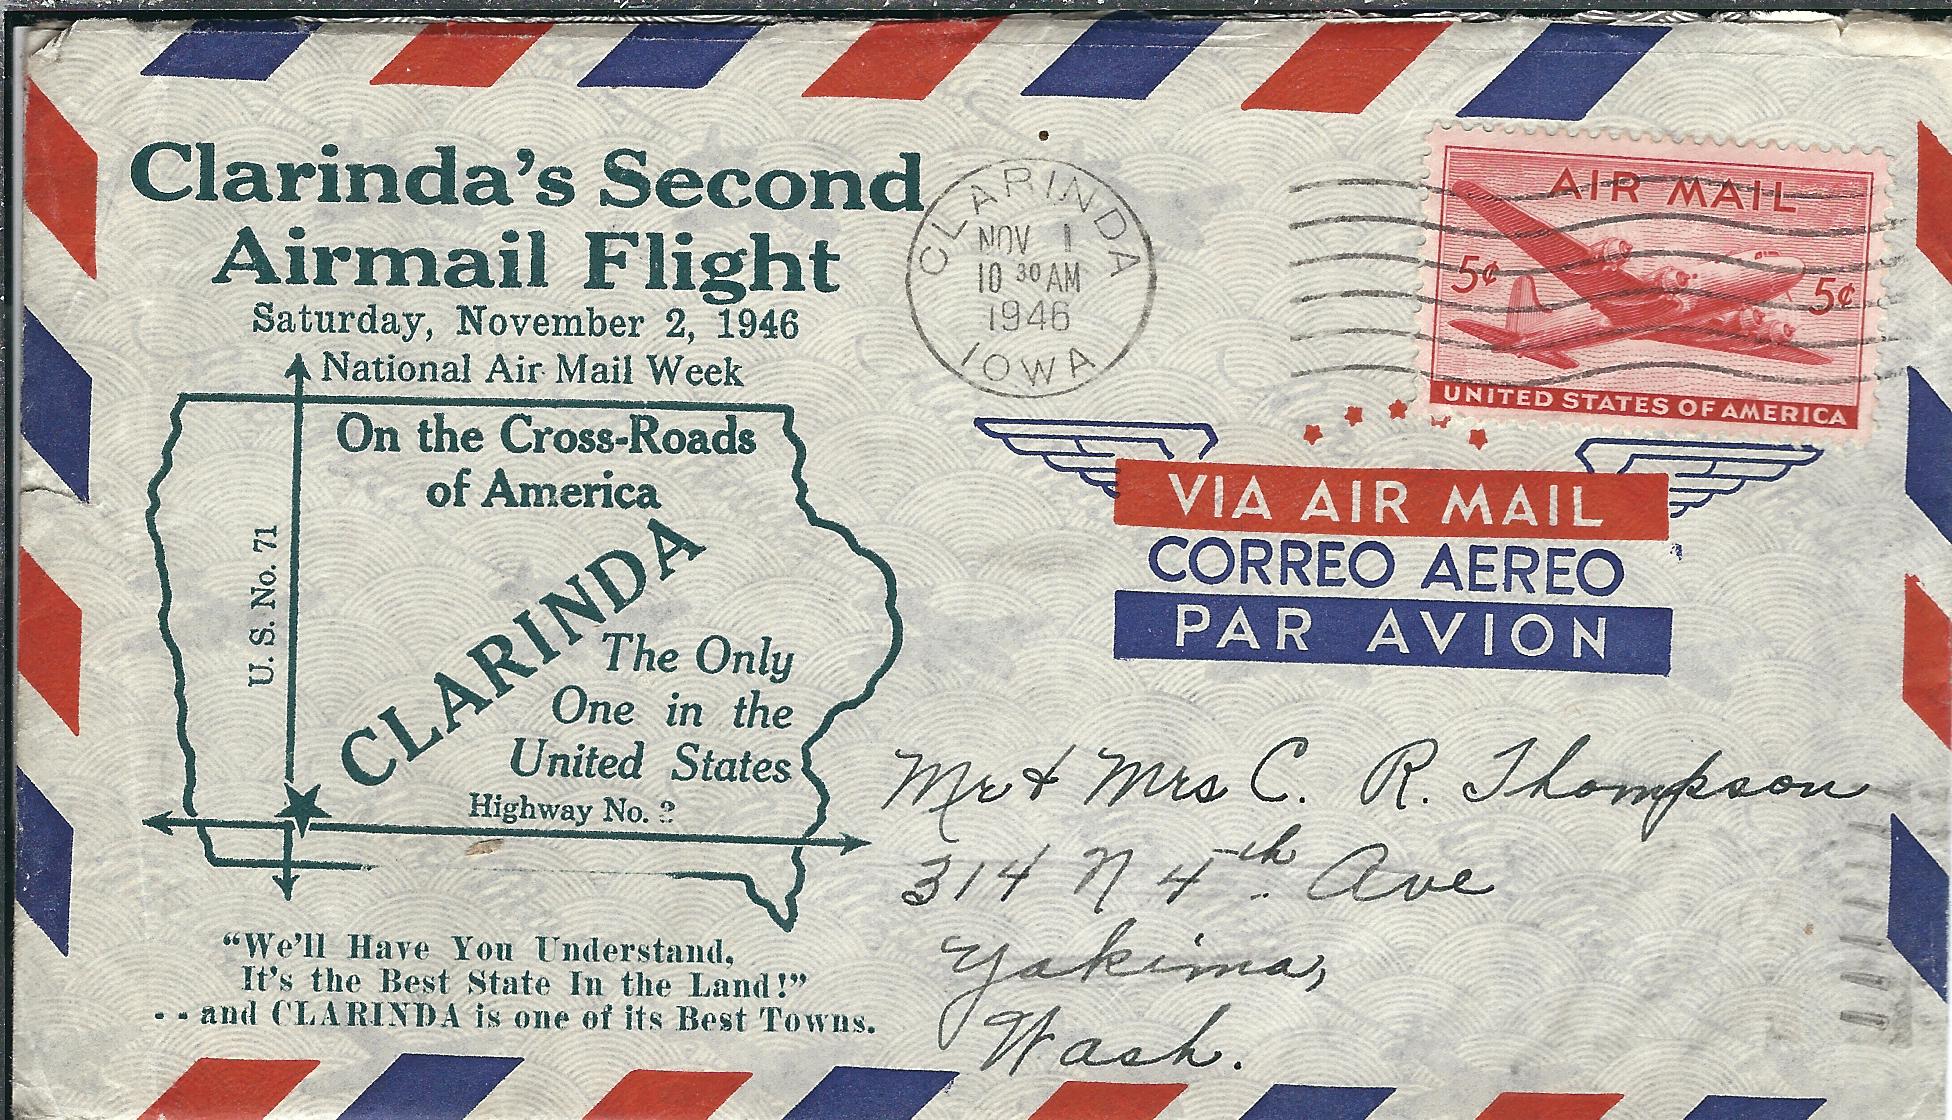 Clarinda's Second
Airmail Flight
Saturday, November 2, 1946
National Air Mail Week
On the Cross-Roads
of America
U. S. No. 71
CLARINDA
The Only
One in the
United States
Highway No. 2
"We'll Have You Understand,
It's the Best State In the Land!"
- - and CLARINDA is one of its Best Towns.
CLARINDA
NOV 1
10 30 AM
1946
IOWA
AIR MAIL
5¢ 5¢
UNITED STATES OF AMERICA
VIA AIR MAIL
CORREO AEREO
PAR AVION
Mr & Mrs C. R. Thompson
314 N 4th Ave
Yakima,
Wash.